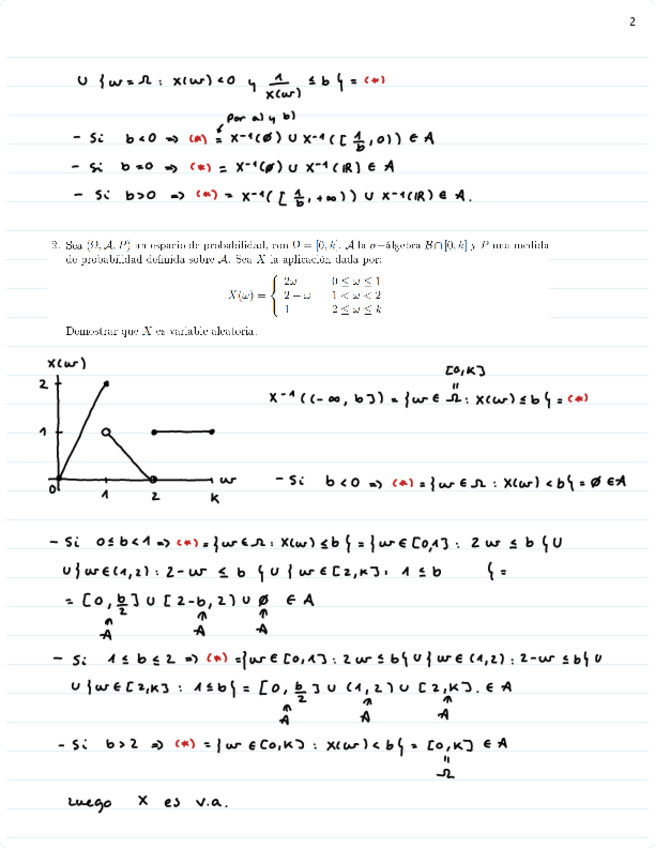 2
∪ {w = Ω : x(w) < 0 y 1/x(w) ≤ b} = (*)
por a) y b)
- Si b < 0 => (*) = x⁻¹(∅) ∪ x⁻¹([1/b, 0)) ∈ A
- Si b = 0 => (*) = x⁻¹(∅) ∪ x⁻¹(IR) ∈ A
- Si b > 0 => (*) = x⁻¹([1/b, +∞)) ∪ x⁻¹(IR) ∈ A.
2. Sea (Ω, A, P) un espacio de probabilidad, con Ω = [0, k], A la σ−álgebra B∩[0, k] y P una medida
de probabilidad definida sobre A. Sea X la aplicación dada por:
X(ω) = { 2ω 0 ≤ ω ≤ 1
2 − ω 1 < ω < 2
1 2 ≤ ω ≤ k
Demostrar que X es variable aleatoria.
x(w)
2
1
0 1 2 K w
[0,K]
"
x⁻¹((-∞, b]) = {w ∈ Ω : x(w) ≤ b} = (*)
- Si b < 0 => (*) = {w ∈ Ω : x(w) < b} = ∅ ∈ A
- Si 0 ≤ b < 1 => (*) = {w ∈ Ω : x(w) ≤ b} = {w ∈ [0,1] : 2w ≤ b} ∪
∪ {w ∈ (1,2) : 2-w ≤ b} ∪ {w ∈ [2,K] : 1 ≤ b } =
= [0, b/2] ∪ [2-b, 2) ∪ ∅ ∈ A
A A A
- Si 1 ≤ b ≤ 2 => (*) = {w ∈ [0,1] : 2w ≤ b} ∪ {w ∈ (1,2) : 2-w ≤ b} ∪
∪ {w ∈ [2,K] : 1 ≤ b} = [0, b/2] ∪ (1,2) ∪ [2,K]. ∈ A
A A A
- Si b > 2 => (*) = {w ∈ [0,K] : x(w) < b} = [0,K] ∈ A
"
Ω
Luego X es v.a.